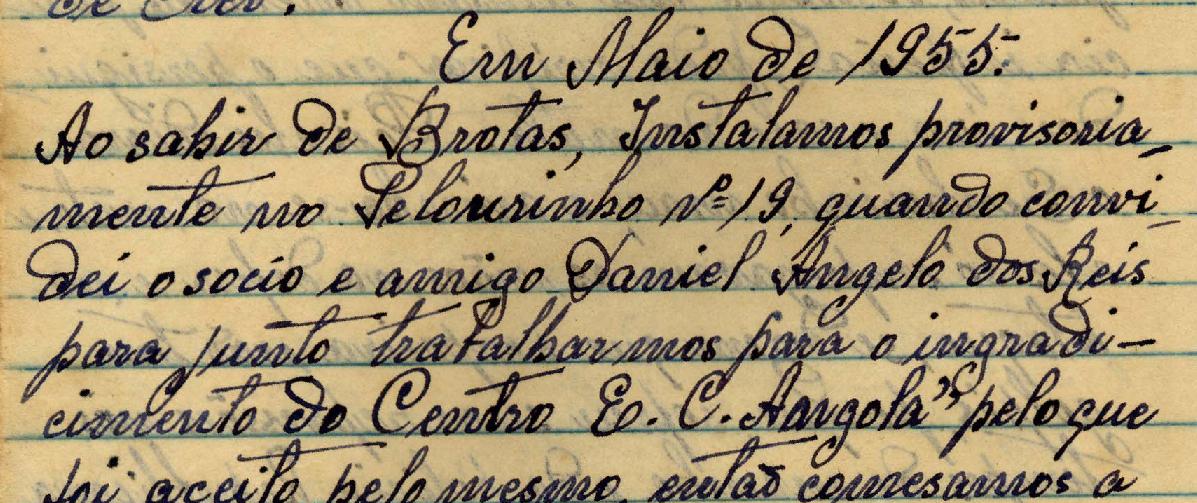 de Cicero.
Em Maio de 1955.
Ao sahir de Brotas, Instalamos provisoria_
mente no Pelourinho nº 19, quando convi_
dei o socio e amigo Daniel Angelo dos Reis
para junto tratalharmos para o ingradi-
cimento do Centro E. C. Aangola", pelo que
foi aceito pelo mesmo, então comesamos a